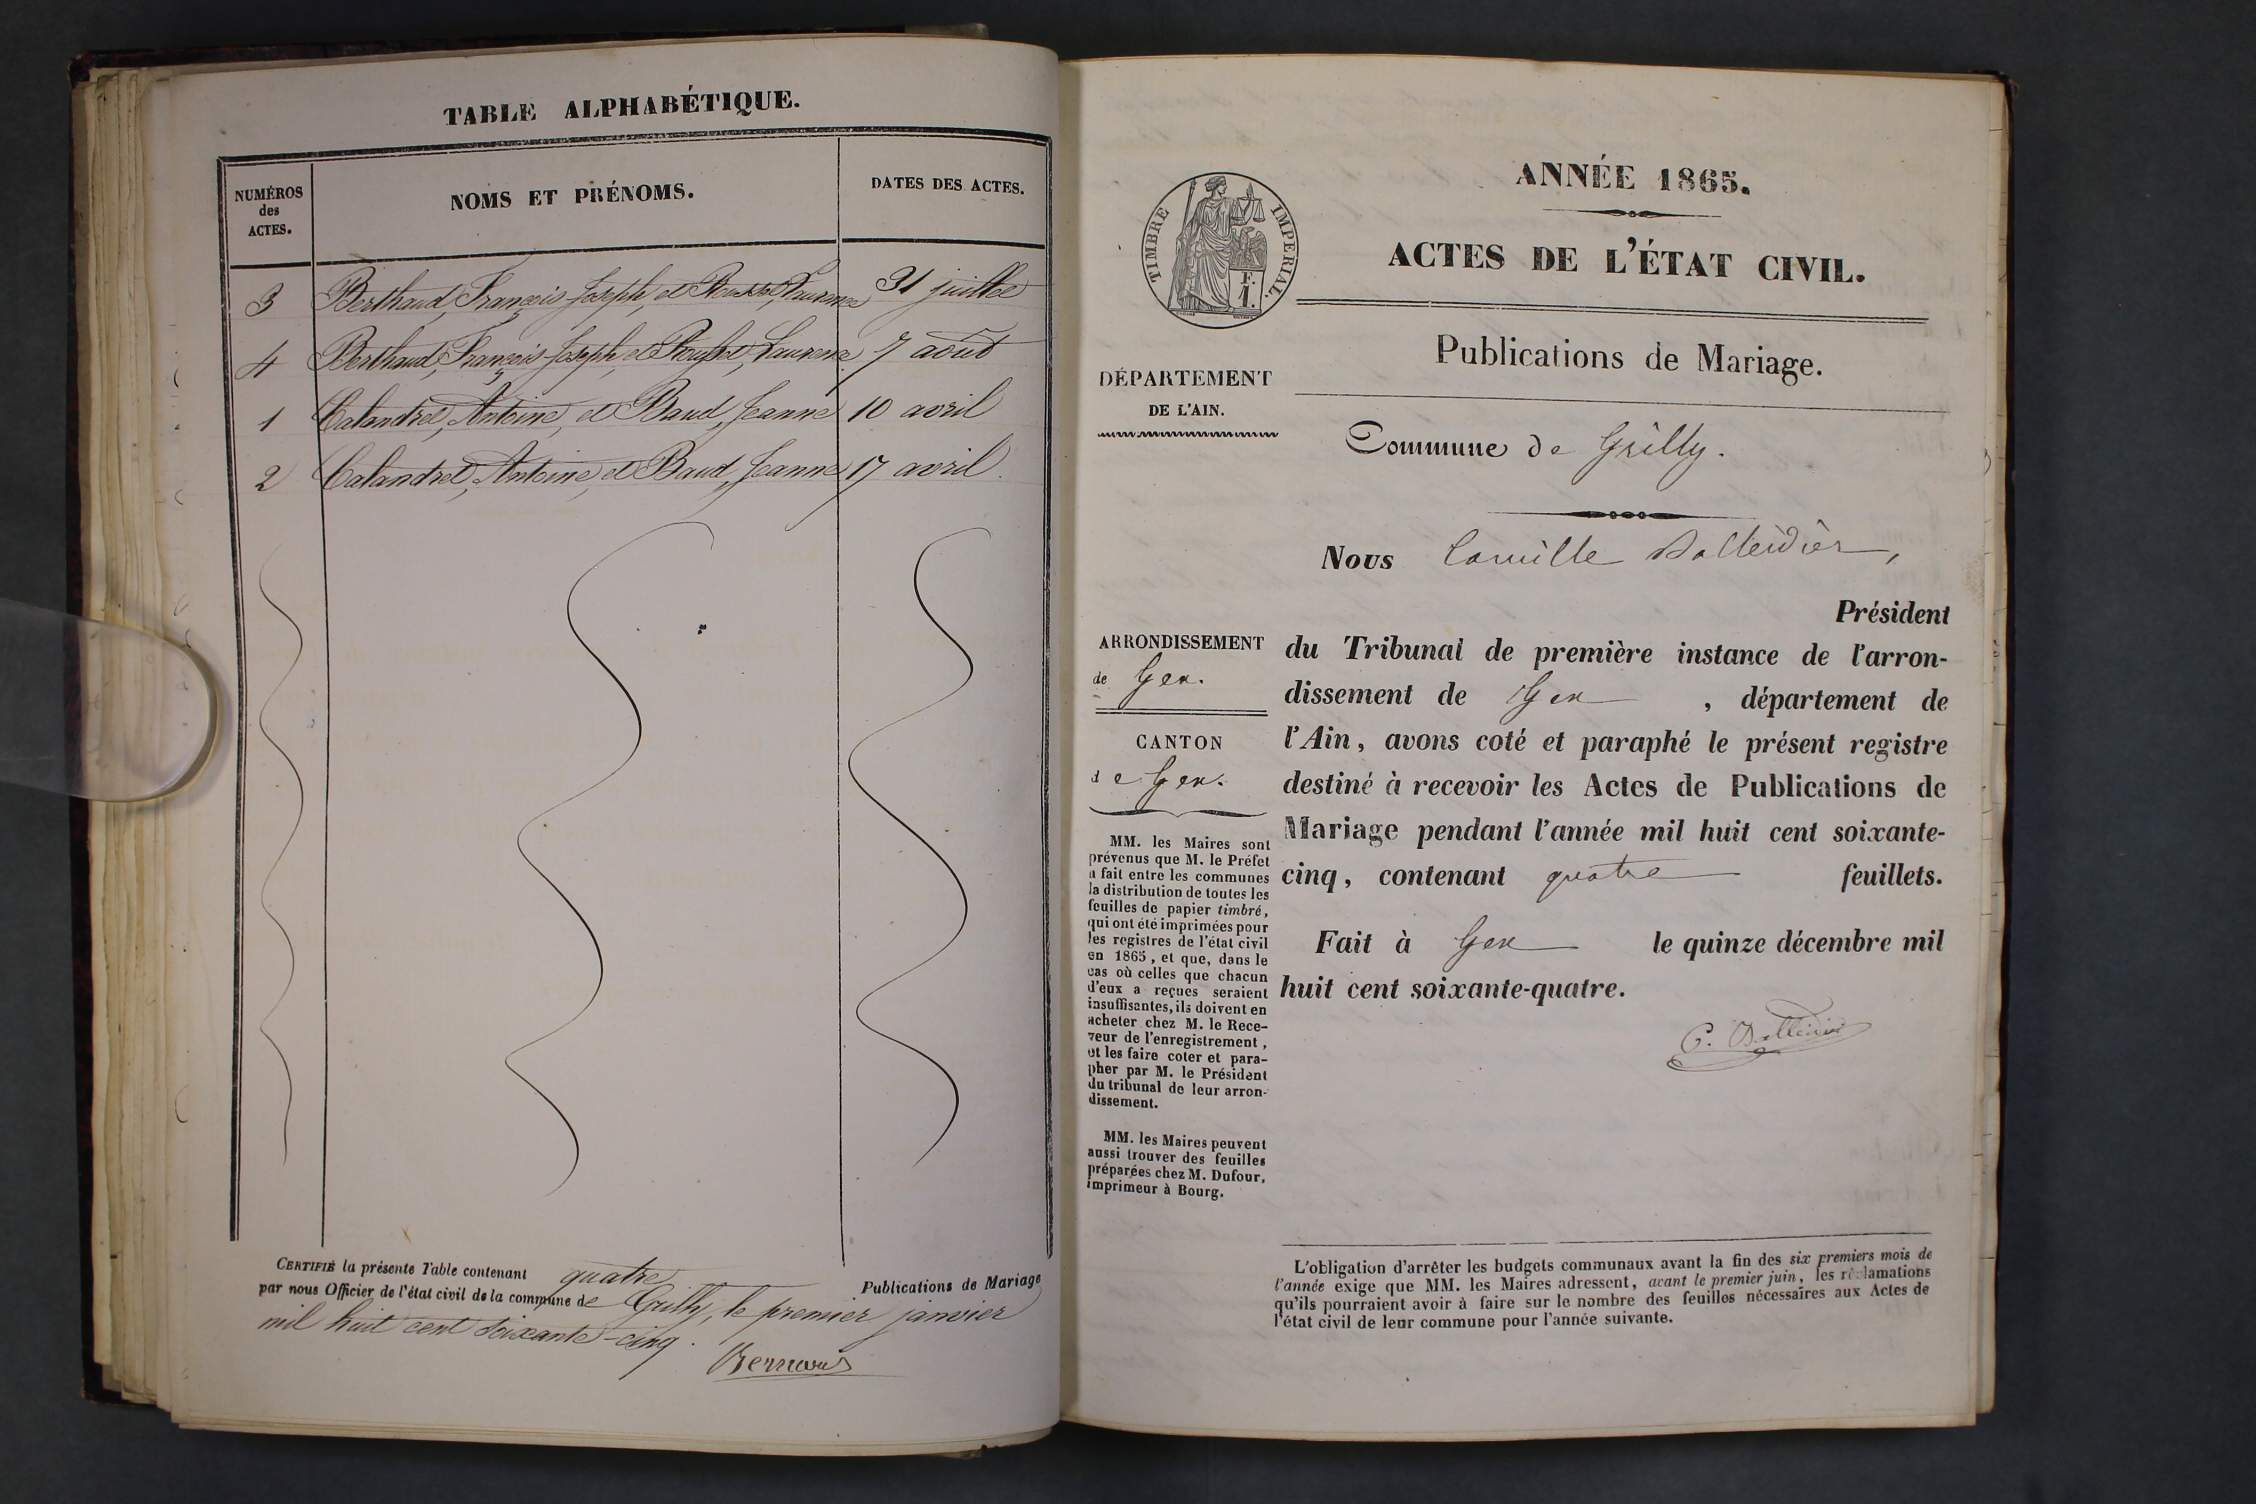 TABLE ALPHABÉTIQUE.
NUMÉROS
des
ACTES.
NOMS ET PRÉNOMS.
DATES DES ACTES.
3 Berthaud, François Joseph, et Roussel, Laurence 31 juillet
4 Berthaud, François Joseph, et Roussel, Laurence 7 août
1 Calandrel, Antoine, et Baud, Jeanne 10 avril
2 Calandrel, Antoine, et Baud, Jeanne 17 avril.
CERTIFIÉ la présente Table contenant quatre Publications de Mariage
par nous Officier de l'état civil de la commune de Grilly, le premier janvier
mil huit cent soixante-cinq.
TIMBRE IMPERIAL.
F.
1.
ANNÉE 1865.
ACTES DE L'ÉTAT CIVIL.
Publications de Mariage.
DÉPARTEMENT
DE L'AIN.
Commune de Grilly.
Nous Camille
Président
ARRONDISSEMENT
de Gex.
CANTON
de Gex.
du Tribunal de première instance de l'arron-
dissement de Gex, département de
l'Ain, avons coté et paraphé le présent registre
destiné à recevoir les Actes de Publications de
Mariage pendant l'année mil huit cent soixante-
cinq, contenant quatre feuillets.
Fait à Gex le quinze décembre mil
huit cent soixante-quatre.
MM. les Maires sont
prévenus que M. le Préfet
a fait entre les communes
la distribution de toutes les
feuilles de papier timbré,
qui ont été imprimées pour
les registres de l'état civil
en 1865, et que, dans le
cas où celles que chacun
d'eux a reçues seraient
insuffisantes, ils doivent en
acheter chez M. le Rece-
veur de l'enregistrement,
et les faire coter et para-
pher par M. le Président
du tribunal de leur arron-
dissement.
MM. les Maires peuvent
aussi trouver des feuilles
préparées chez M. Dufour,
imprimeur à Bourg.
L'obligation d'arrêter les budgets communaux avant la fin des six premiers mois de
l'année exige que MM. les Maires adressent, avant le premier juin, les réclamations
qu'ils pourraient avoir à faire sur le nombre des feuilles nécessaires aux Actes de
l'état civil de leur commune pour l'année suivante.